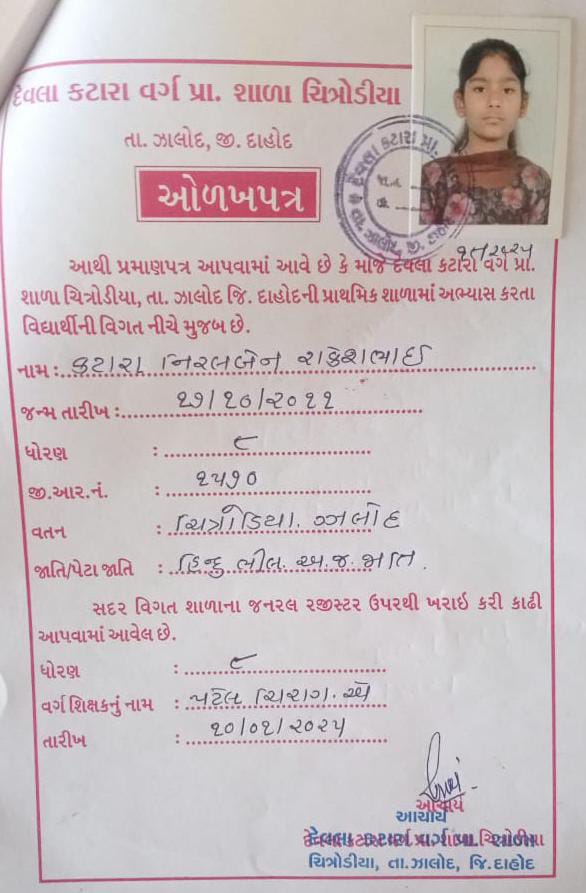 દેવલા કટારા વર્ગ પ્રા. શાળા ચિત્રોડીયા
તા. ઝાલોદ, જી. દાહોદ
ઓળખપત્ર
આથી પ્રમાણપત્ર આપવામાં આવે છે કે માજે દેવલા કટારા વર્ગ પ્રા.
શાળા ચિત્રોડીયા, તા. ઝાલોદ જિ. દાહોદની પ્રાથમિક શાળામાં અભ્યાસ કરતા
વિદ્યાર્થીની વિગત નીચે મુજબ છે.
નામ : કટારા નિરલબેન રાકેશભાઈ
જન્મ તારીખ : ૨૭/૧૦/૨૦૧૧
ધોરણ : ૮
જી.આર.નં. : ૧૫૭૦
વતન : ચિત્રોડિયા. ઝાલોદ
જાતિ/પેટા જાતિ : હિન્દુ ભીલ. અ.જ. જાતિ.
સદર વિગત શાળાના જનરલ રજીસ્ટર ઉપરથી ખરાઇ કરી કાઢી
આપવામાં આવેલ છે.
ધોરણ : ૮
વર્ગ શિક્ષકનું નામ : પટેલ ચિરાગ. એ
તારીખ : ૧૦/૦૧/૨૦૨૫
આચાર્ય
આચાર્ય
દેવલા કટારા વર્ગ પ્રા. શાળા
ચિત્રોડીયા, તા.ઝાલોદ, જિ.દાહોદ